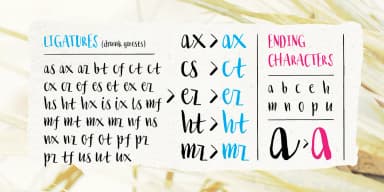 LIGATURES (drunk guests)
as ax az bt cf ct ct
cx cz of es et ex ez
hs ht hx is ix ls mf
mf mt mx mz nf ns
nx nz of ot pf pz
pz tf us ut ux
ax > ax
cs > ct
ez > ez
ht > ht
mz > mz
ENDING
CHARACTERS
a b c e h
m n o p u
a > a